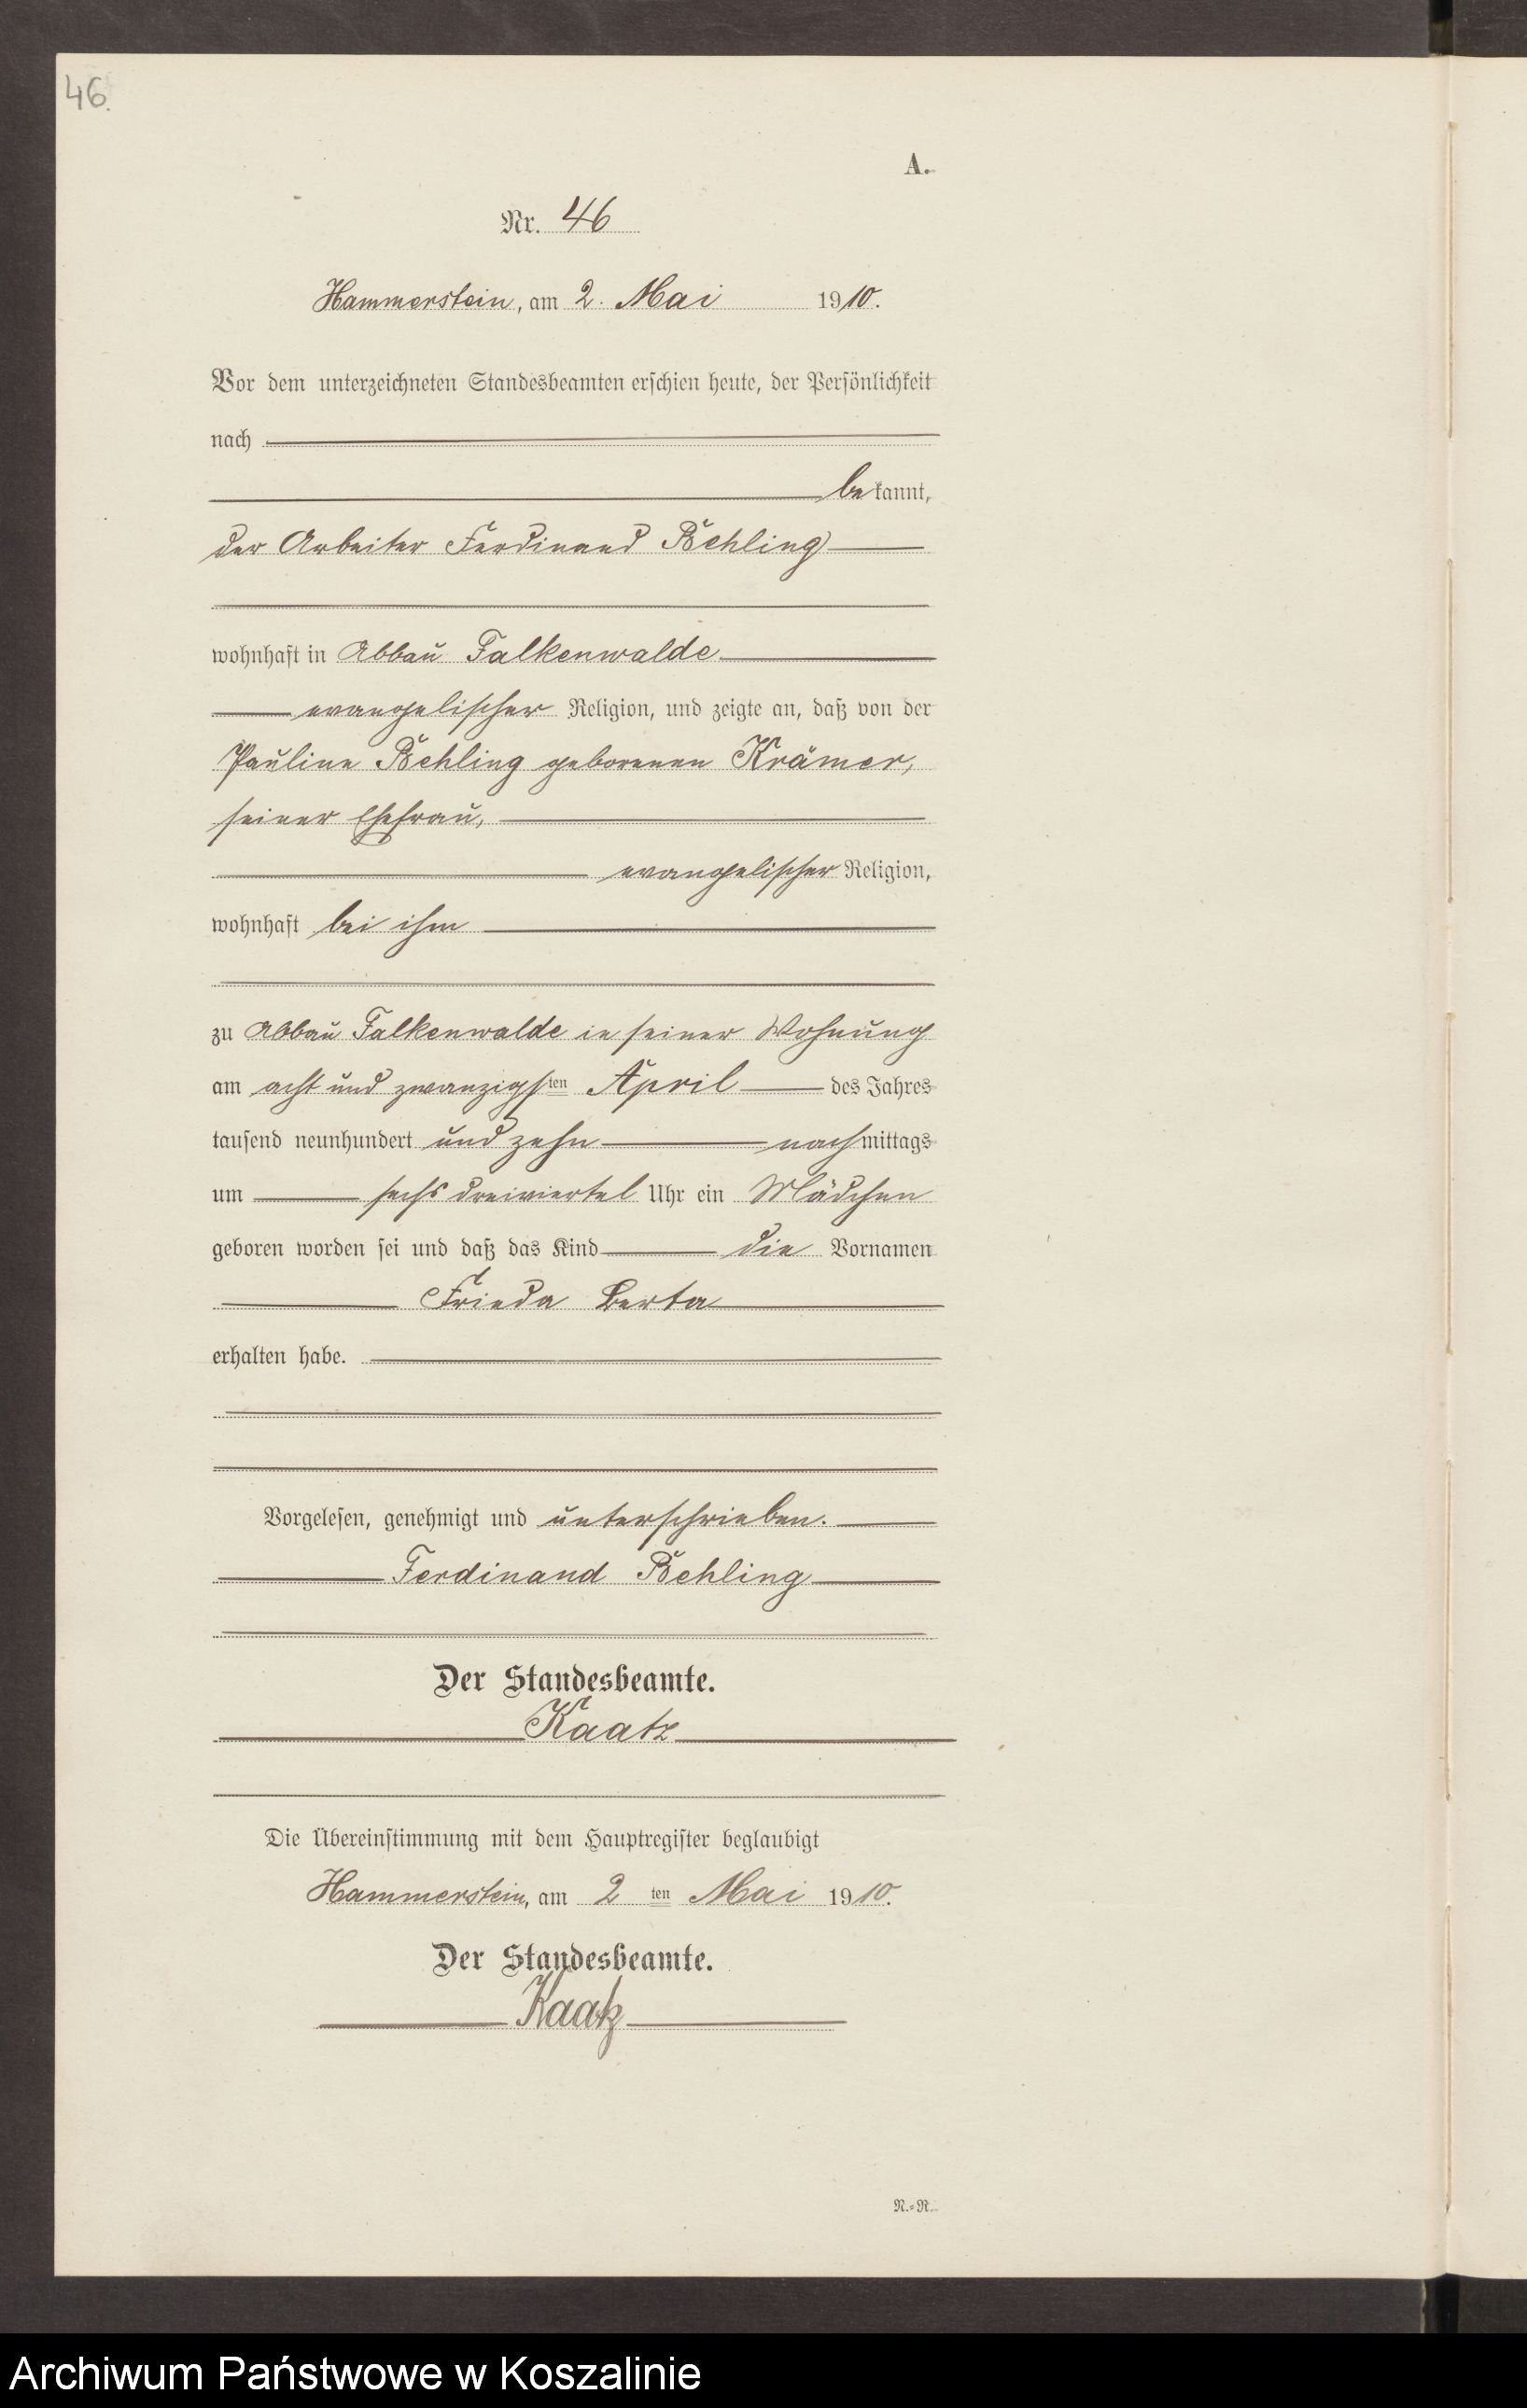 46.
A.
Nr. 46
Hammerstein, am 2. Mai 1910.
Vor dem unterzeichneten Standesbeamten erschien heute, der Persönlichkeit
nach
bekannt,
der Arbeiter Ferdinand
wohnhaft in Abbau Falkenwalde
evangelischer Religion, und zeigte an, daß von der
Pauline geborenen Krämer,
seiner Ehefrau,
evangelischer Religion,
wohnhaft bei ihm
zu Abbau Falkenwalde in seiner Wohnung
am acht und zwanzigsten April des Jahres
tausend neunhundert und zehn nachmittags
um sechs dreiviertel Uhr ein Mädchen
geboren worden sei und daß das Kind die Vornamen
Frieda Berta
erhalten habe.
Vorgelesen, genehmigt und unterschrieben.
Ferdinand
Der Standesbeamte.
Kaatz
Die Übereinstimmung mit dem Hauptregister beglaubigt
Hammerstein, am 2 ten Mai 1910.
Der Standesbeamte.
Kaatz
N.=R.
Archiwum Państwowe w Koszalinie